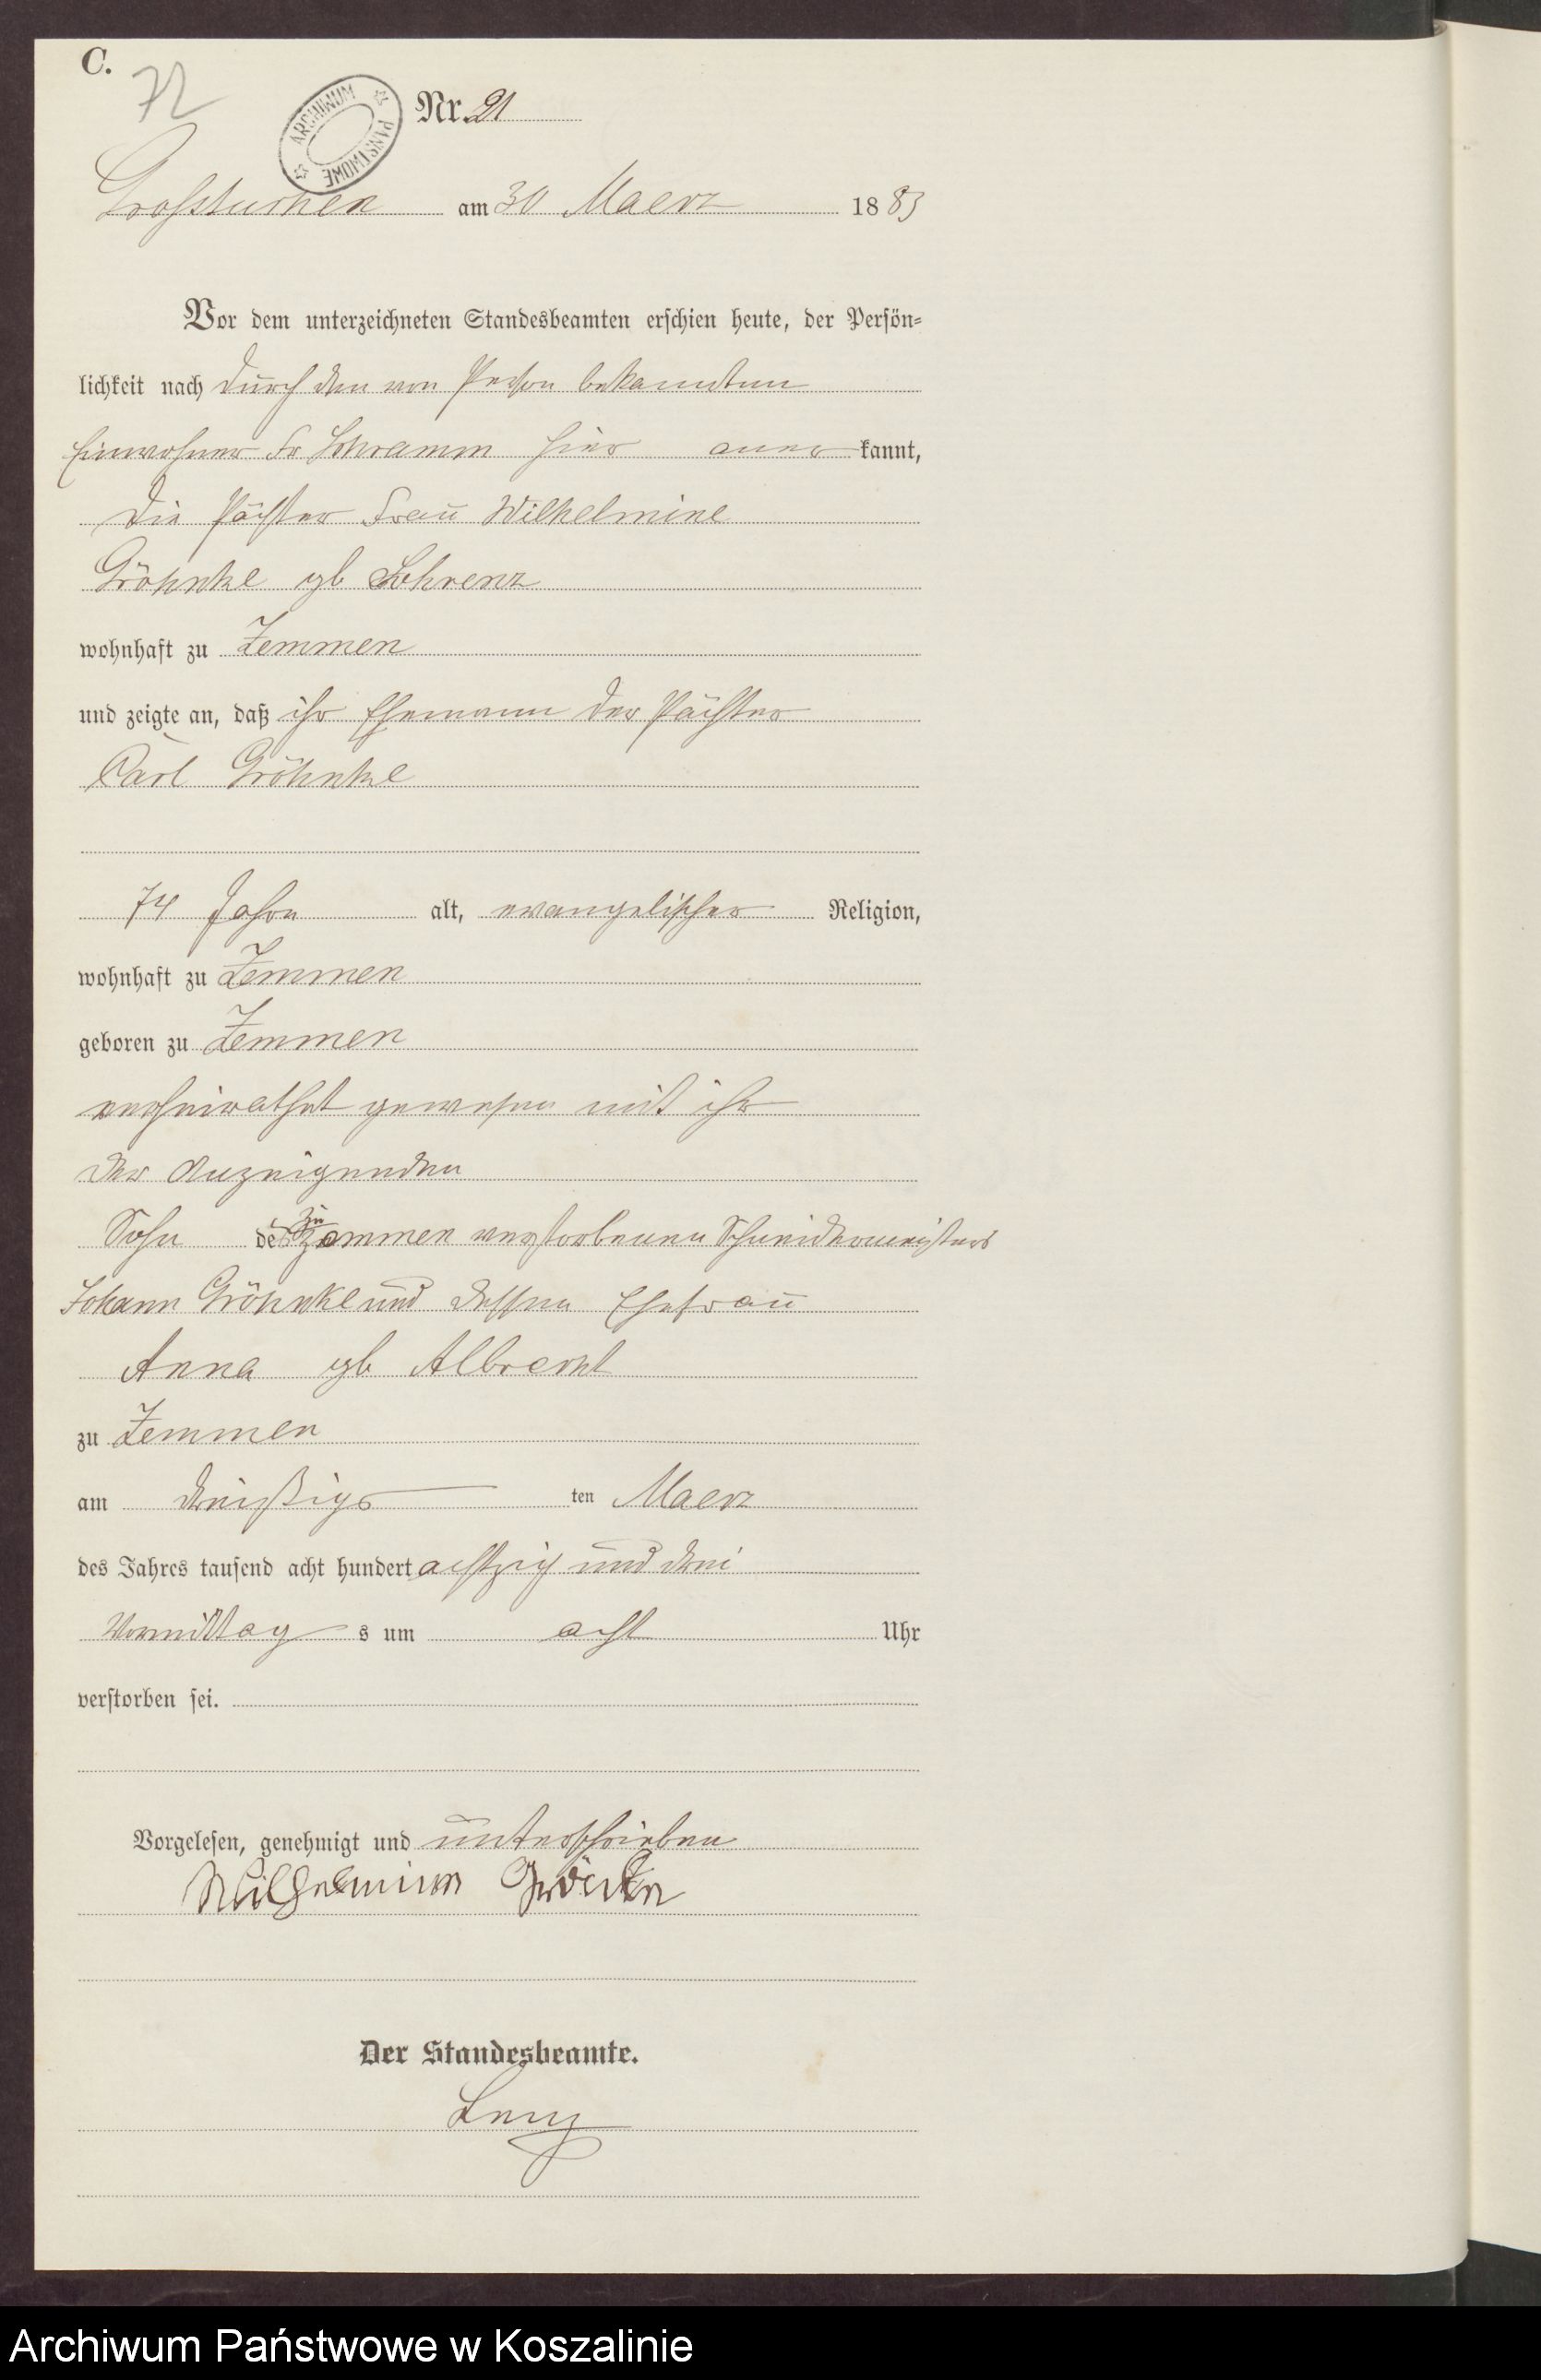 C.
72
Nr. 21
ARCHIWUM PAŃSTWOWE
Grosstuchen am 30 Maerz 1883
Vor dem unterzeichneten Standesbeamten erschien heute, der Persön-
lichkeit nach durch den von Person bekannten
Einwohner Fr Schramm hier aner kannt,
die Pächter Frau Wilhelmine
Gröhnke gb
wohnhaft zu Zemmen
und zeigte an, daß ihr Ehemann der Pächter
Carl Gröhnke
74 Jahre alt, evangelischer Religion,
wohnhaft zu Zemmen
geboren zu Zemmen
verheirathet gewesen mit ihr
der Anzeigenden
Sohn des zu Zemmen verstorbenen Schneidermeisters
Johann Gröhnke und dessen Ehefrau
Anna gb Albrecht
zu Zemmen
am dreißigs ten Maerz
des Jahres tausend acht hundert achtzig und drei
Vormittag s um acht Uhr
verstorben sei.
Vorgelesen, genehmigt und unterschrieben
Der Standesbeamte.
Archiwum Państwowe w Koszalinie